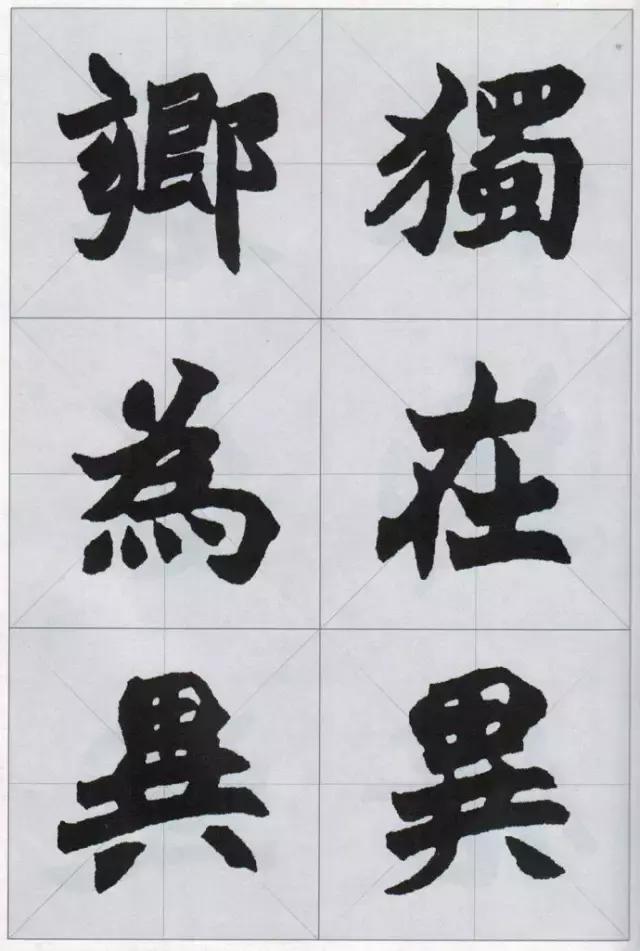 獨在異
鄉為異